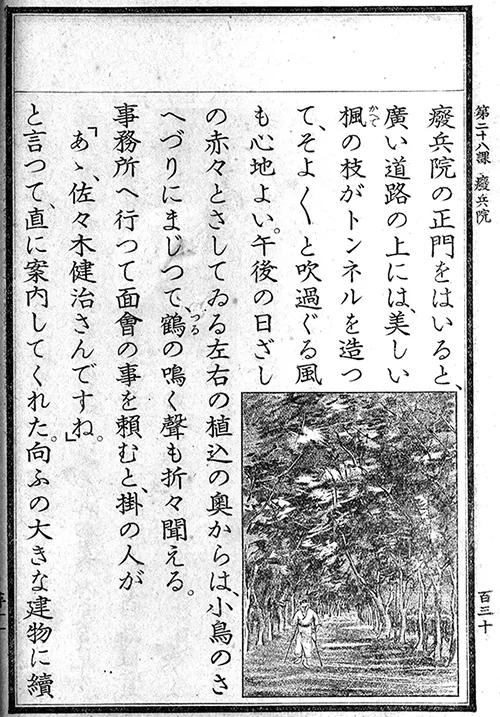 第二十八課 癈兵院
百三十
癈兵院の正門をはいると、
廣い道路の上には、美しい
楓の枝がトンネルを造つ
かへで
て、そよ〳〵と吹過ぐる風
も心地よい。午後の日ざし
の赤々とさしてゐる左右の植込の奧からは、小鳥のさ
へづりにまじつて鶴の鳴く聲も折々聞える。
つる
事務所へ行つて面會の事を頼むと、掛の人が
「あゝ、佐々木健治さんですね。」
と言つて、直に案内してくれた。向ふの大きな建物に續